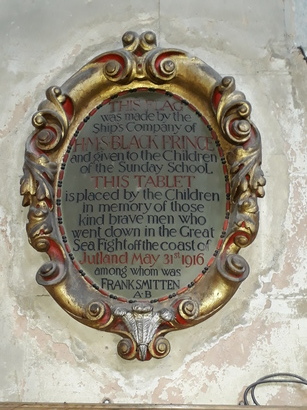 THIS FLAG
was made by the
Ship's Company of
H.M.S. BLACK PRINCE
and given to the Children
of the Sunday School
THIS TABLET
is placed by the Children
in memory of those
kind brave men who
went down in the Great
Sea Fight off the coast of
Jutland May 31st 1916
among whom was
FRANK SMITTEN
A·B